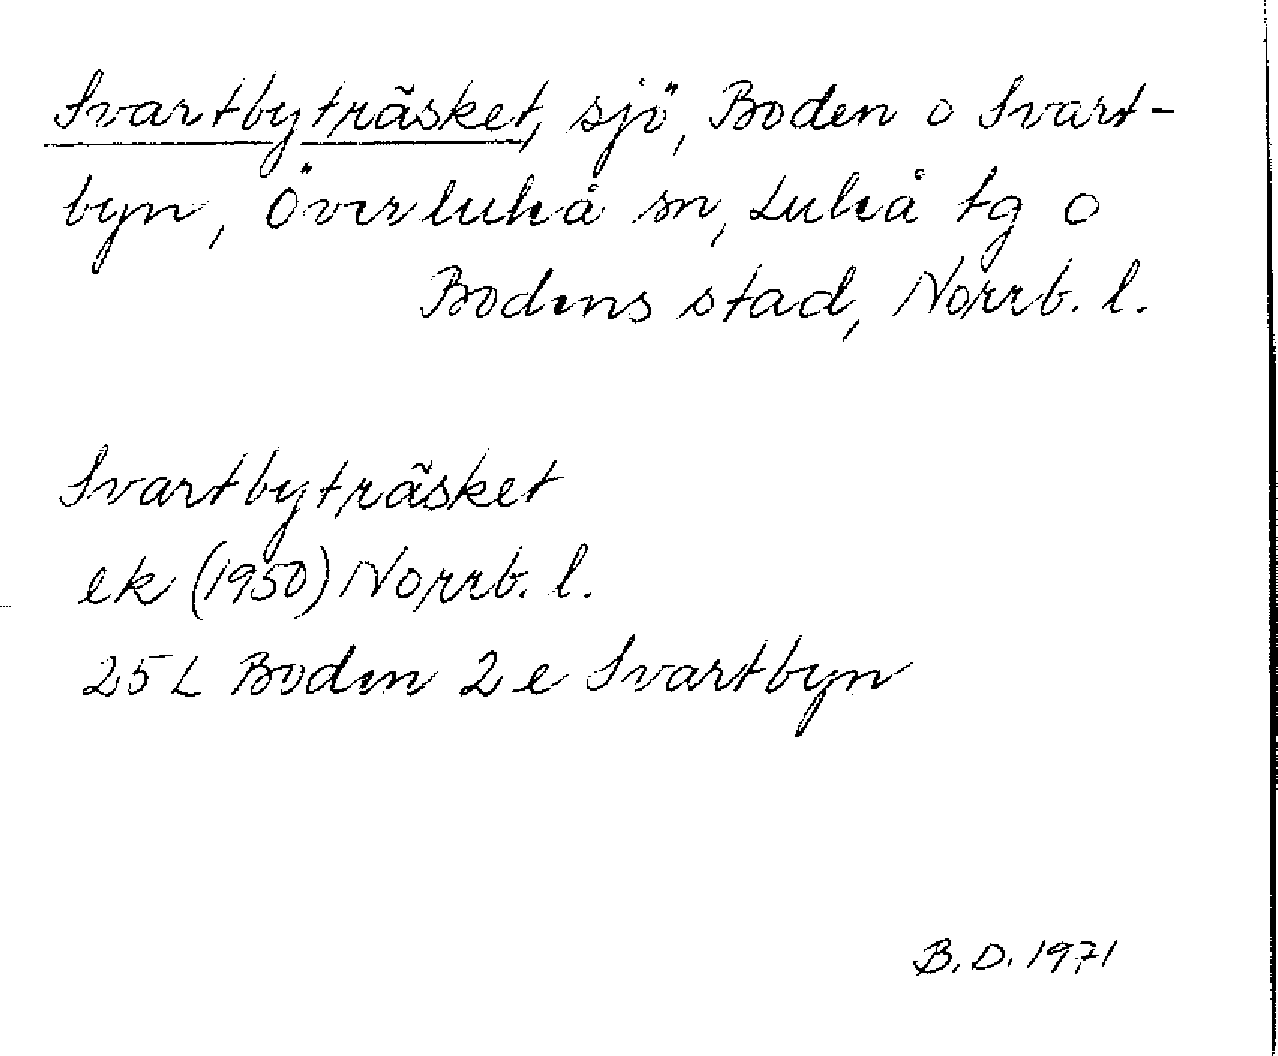 Svartbyträsket, sjö, Boden o Svart-
byn, Överluleå sn, Luleå tg o
Bodens stad, Norrb. l.
Svartbyträsket
ek (1950) Norrb. l.
25 L Boden 2 e Svartbyn
B.D. 1971